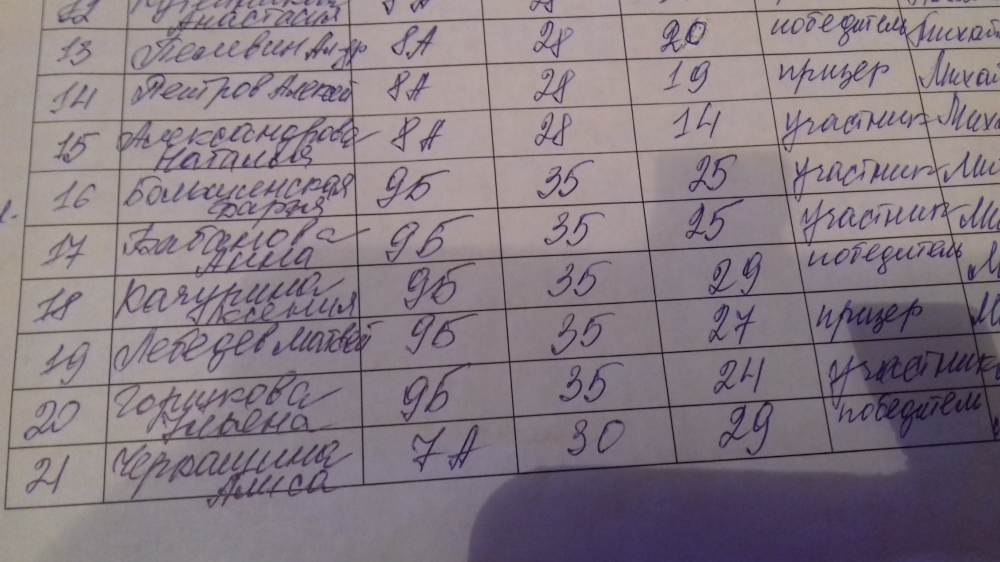 12 Анастасия 8А 28
13 Пелевин Ал-др 8А 28 20 победитель Михай
14 Петров Алексей 8А 28 19 призер Михай
15 Александрова 8А 28 14 участник Миха
Наталья
16 9Б 35 25 участник Ми
Дарья
17 Бабанова 9Б 35 25 участник Ми
Анна
18 Качурина 9Б 35 29 победитель М
Ксения
19 Лебедев Матвей 9Б 35 27 призер М
20 Горшкова 9Б 35 24 участник
Ульяна
21 Черкашина 7А 30 29 победитель
Алиса